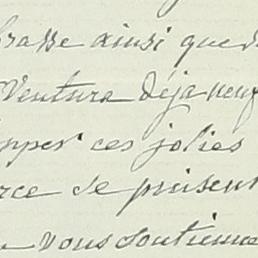 brasse ainsi que d
Ventura déja neuf
mper ces jolies
rce se puisen
vous soutienne